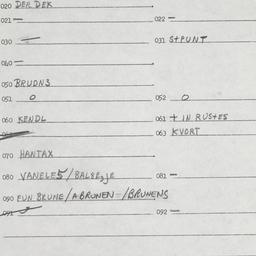 020 DER DEK
021 — 022 —
030 — 031 STPUNT
040 —
050 BRUDNS
051 0 052 0
060 KENDL 061 + IN RUSTES
063 KVORT
070 HANTAX
080 VANELES / BALSEJE 081 —
090 FUN BRUNE / A BRUNEN - / BRUNENS
091 092 —